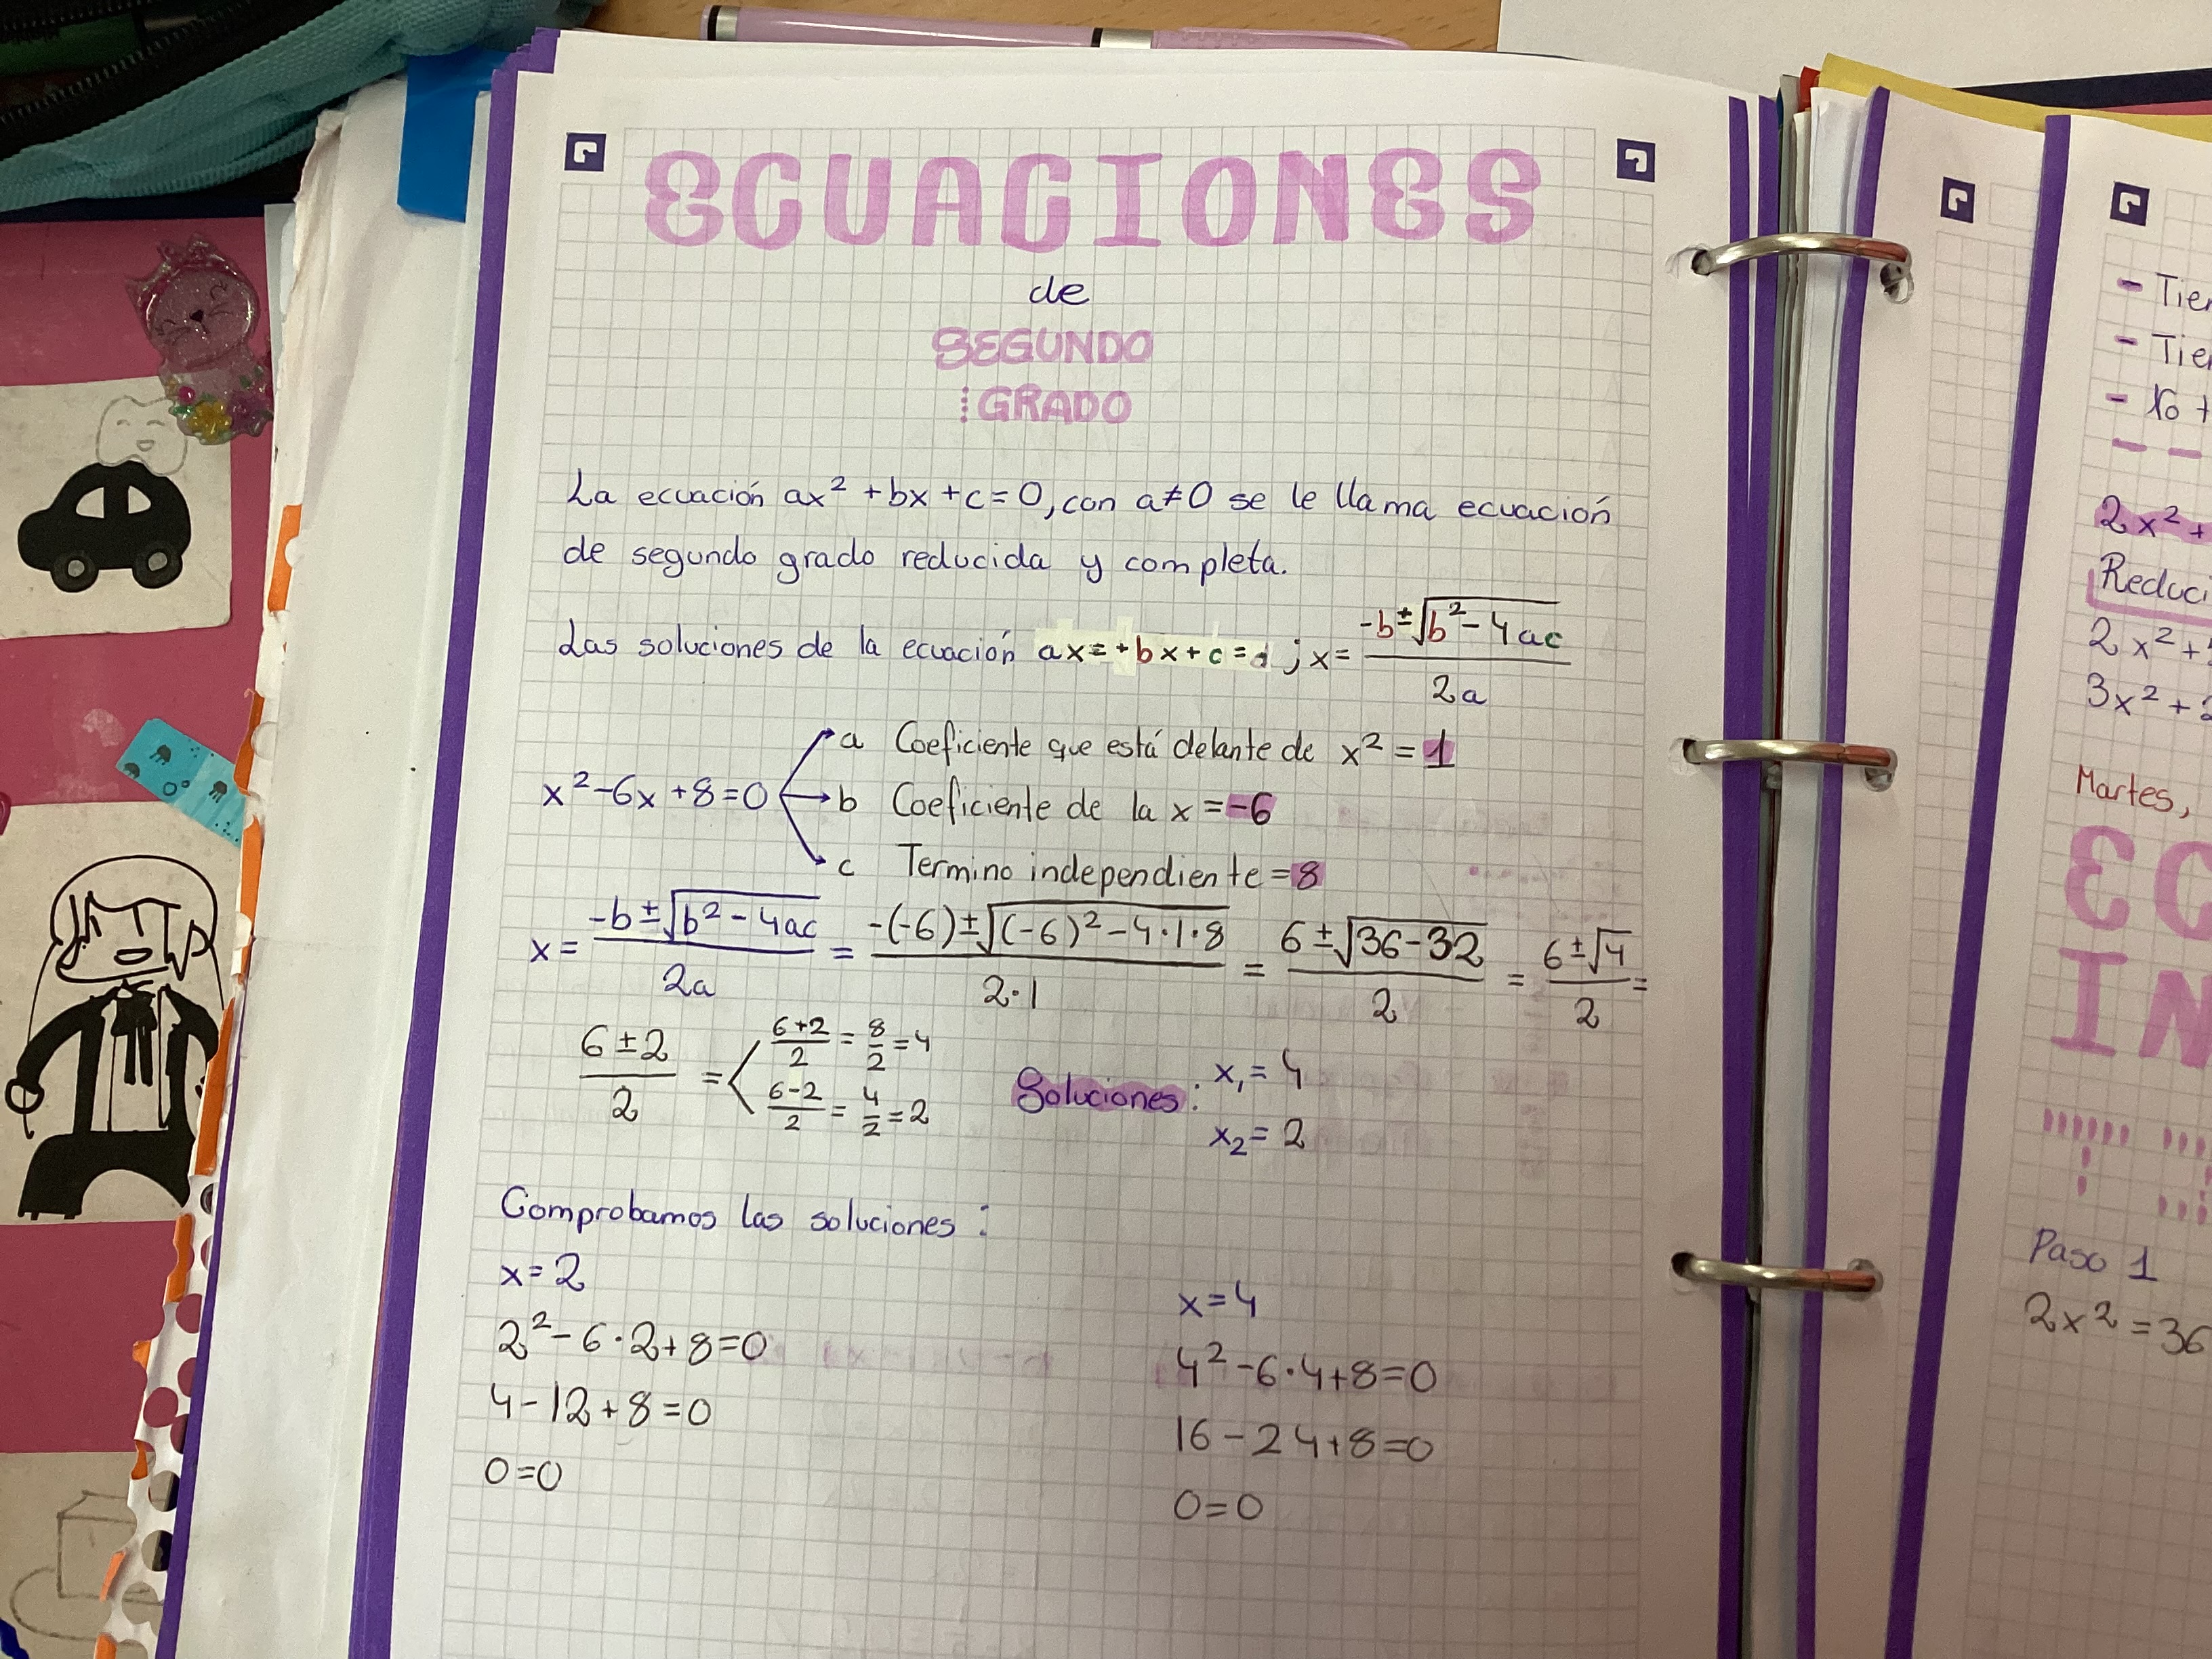 ECUACIONES
de
SEGUNDO
GRADO
La ecuación ax² + bx + c = 0, con a ≠ 0 se le llama ecuación
de segundo grado reducida y completa.
Las soluciones de la ecuación ax= +bx + c = ; x = (-b ± √(b² - 4ac)) / 2a
x² - 6x + 8 = 0
a Coeficiente que está delante de x² = 1
b Coeficiente de la x = -6
c Termino independiente = 8
x = (-b ± √(b² - 4ac)) / 2a = (-(-6) ± √((-6)² - 4·1·8)) / 2·1 = (6 ± √(36-32)) / 2 = (6 ± √4) / 2 =
(6 ± 2) / 2 =
(6+2) / 2 = 8/2 = 4
(6-2) / 2 = 4/2 = 2
Soluciones: x₁ = 4
x₂ = 2
Comprobamos las soluciones:
x = 2
2² - 6·2 + 8 = 0
4 - 12 + 8 = 0
0 = 0
x = 4
4² - 6·4 + 8 = 0
16 - 24 + 8 = 0
0 = 0
- Tie
- Tie
- No
2x² +
Reduci
2x² +
3x² +
Martes,
EC
IN
Paso 1
2x² = 36